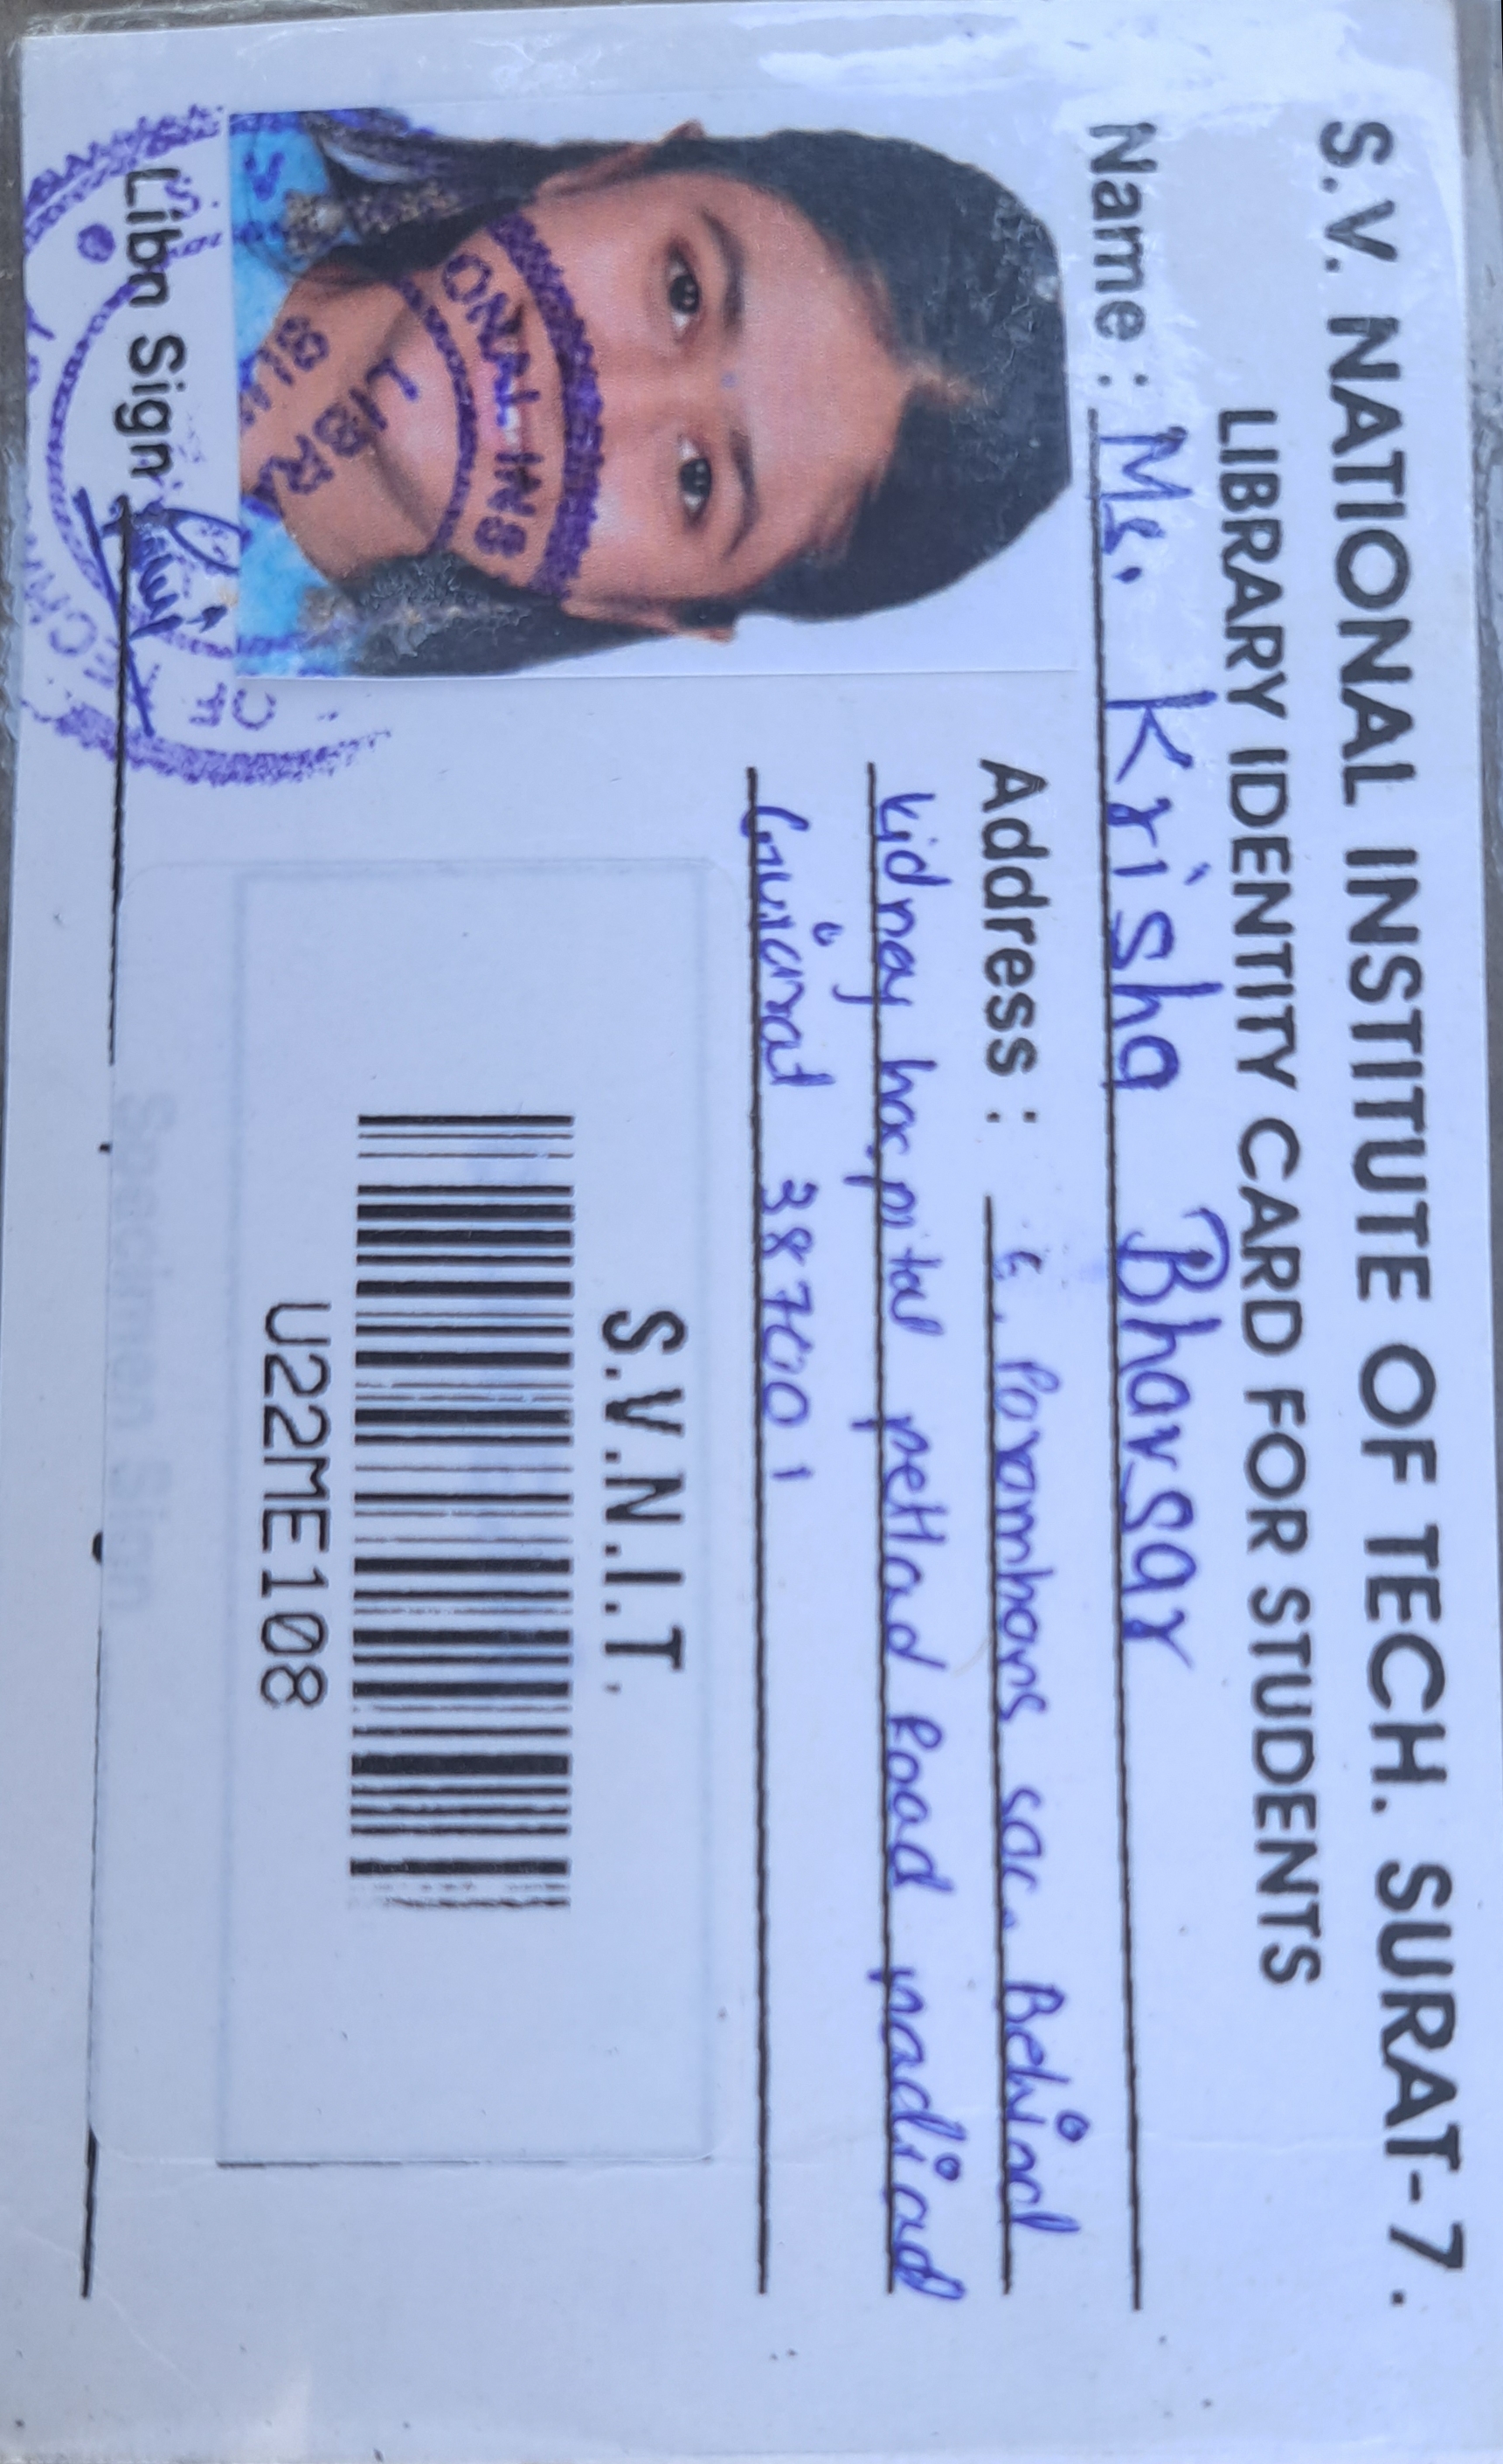 S.V. NATIONAL INSTITUTE OF TECH. SURAT-7.
LIBRARY IDENTITY CARD FOR STUDENTS
Name : Ms. Krisha Bhavsar
Address : 6, Paramhans soc. Behind
kidney hospital petlad Road nadiad
Gujarat 387001
S.V.N.I.T.
U22ME108
ONAL INS
LIBR
Libn Sign
Specimen Sign